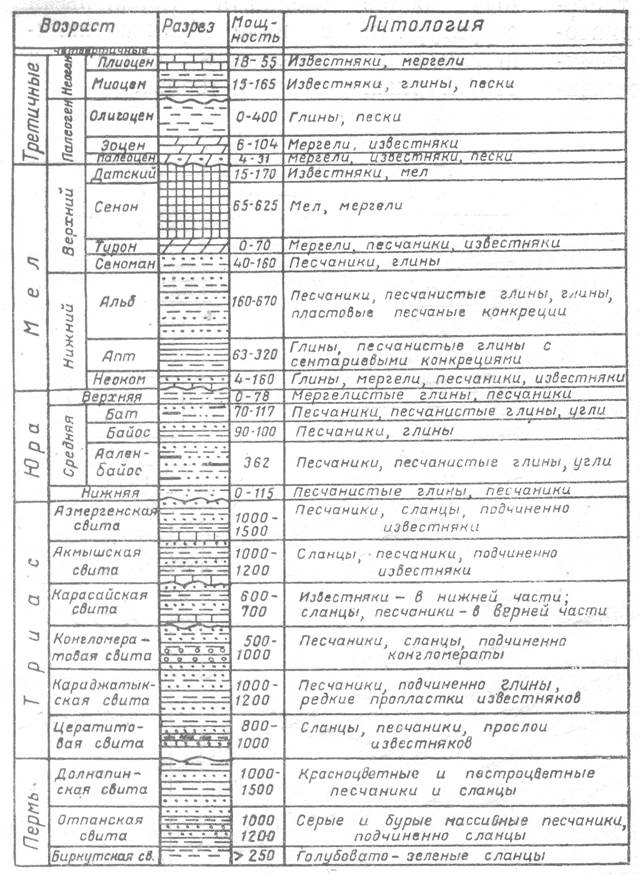 Возраст Разрез Мощ- Литология
ность
четвертичные
Третичные
Неоген
Плиоцен 18-55 Известняки, мергели
Миоцен 15-165 Известняки, глины, пески
Палеоген
Олигоцен 0-400 Глины, пески
Эоцен 6-104 Мергели, известняки
Палеоцен 4-31 Мергели, известняки, пески
Мел
Верхний
Датский 15-170 Известняки, мел
Сенон 65-625 Мел, мергели
Турон 0-70 Мергели, песчаники, известняки
Сеноман 40-160 Песчаники, глины
Нижний
Альб 160-670 Песчаники, песчанистые глины, глины,
пластовые песчаные конкреции
Апт 63-320 Глины, песчанистые глины с
сентариевыми конкрециями
Неоком 4-160 Глины, мергели, песчаники, известняки
Юра
Верхняя 0-78 Мергелистые глины, песчаники
Средняя
Бат 70-117 Песчаники, песчанистые глины, угли
Байос 90-100 Песчаники, глины
Аален- 362 Песчаники, песчанистые глины, угли
байос
Нижняя 0-115 Песчанистые глины, песчаники
Триас
Азмергенская 1000- Песчаники, сланцы, подчиненно
свита 1500 известняки
Акмышская 1000- Сланцы, песчаники, подчиненно
свита 1200 известняки
Карасайская 600- Известняки - в нижней части;
свита 700 сланцы, песчаники - в верней части
Конгломера- 500- Песчаники, сланцы, подчиненно
товая свита 1000 конгломераты
Караджатык- 1000- Песчаники, подчиненно глины,
ская свита 1200 редкие пропластки известняков
Цератито- 800- Сланцы, песчаники, прослои
вая свита 1000 известняков
Пермь
Долнапин- 1000- Красноцветные и пестроцветные
ская свита 1500 песчаники и сланцы
Отпанская 1000 Серые и бурые массивные песчаники,
свита 1200 подчиненно сланцы
Биркутская св. >250 Голубовато-зеленые сланцы